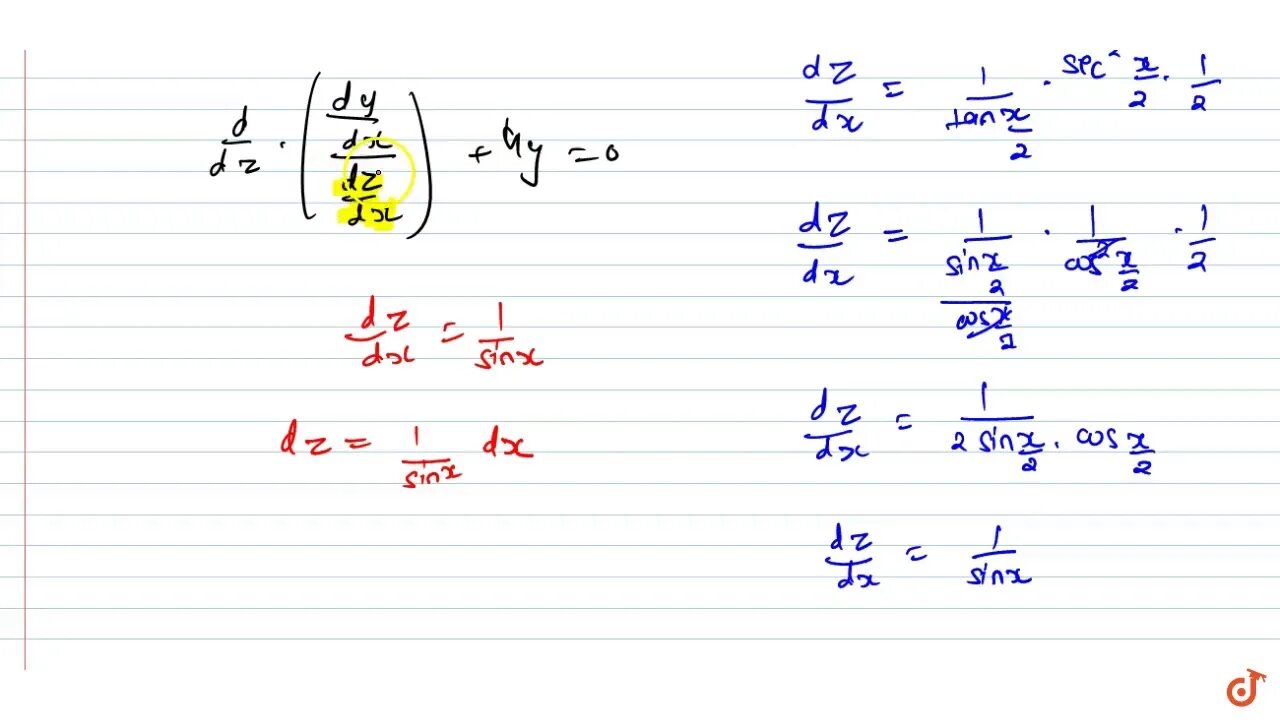 d/dz · ( (dy/dx) / (dz/dx) ) + 4y = 0
dz/dx = 1/sinx
dz = 1/sinx dx
dz/dx = 1/(tan x/2) · sec² x/2 · 1/2
dz/dx = 1/((sin x/2)/(cos x/2)) · 1/(cos² x/2) · 1/2
dz/dx = 1/(2 sin x/2 · cos x/2)
dz/dx = 1/sinx